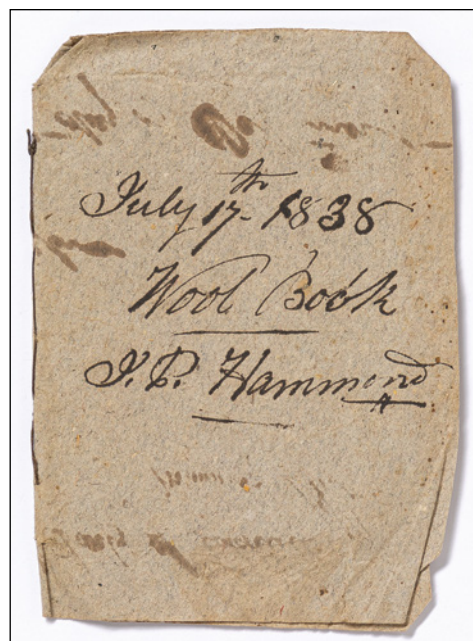 July 17th 1838
Wool Book
J. P. Hammond